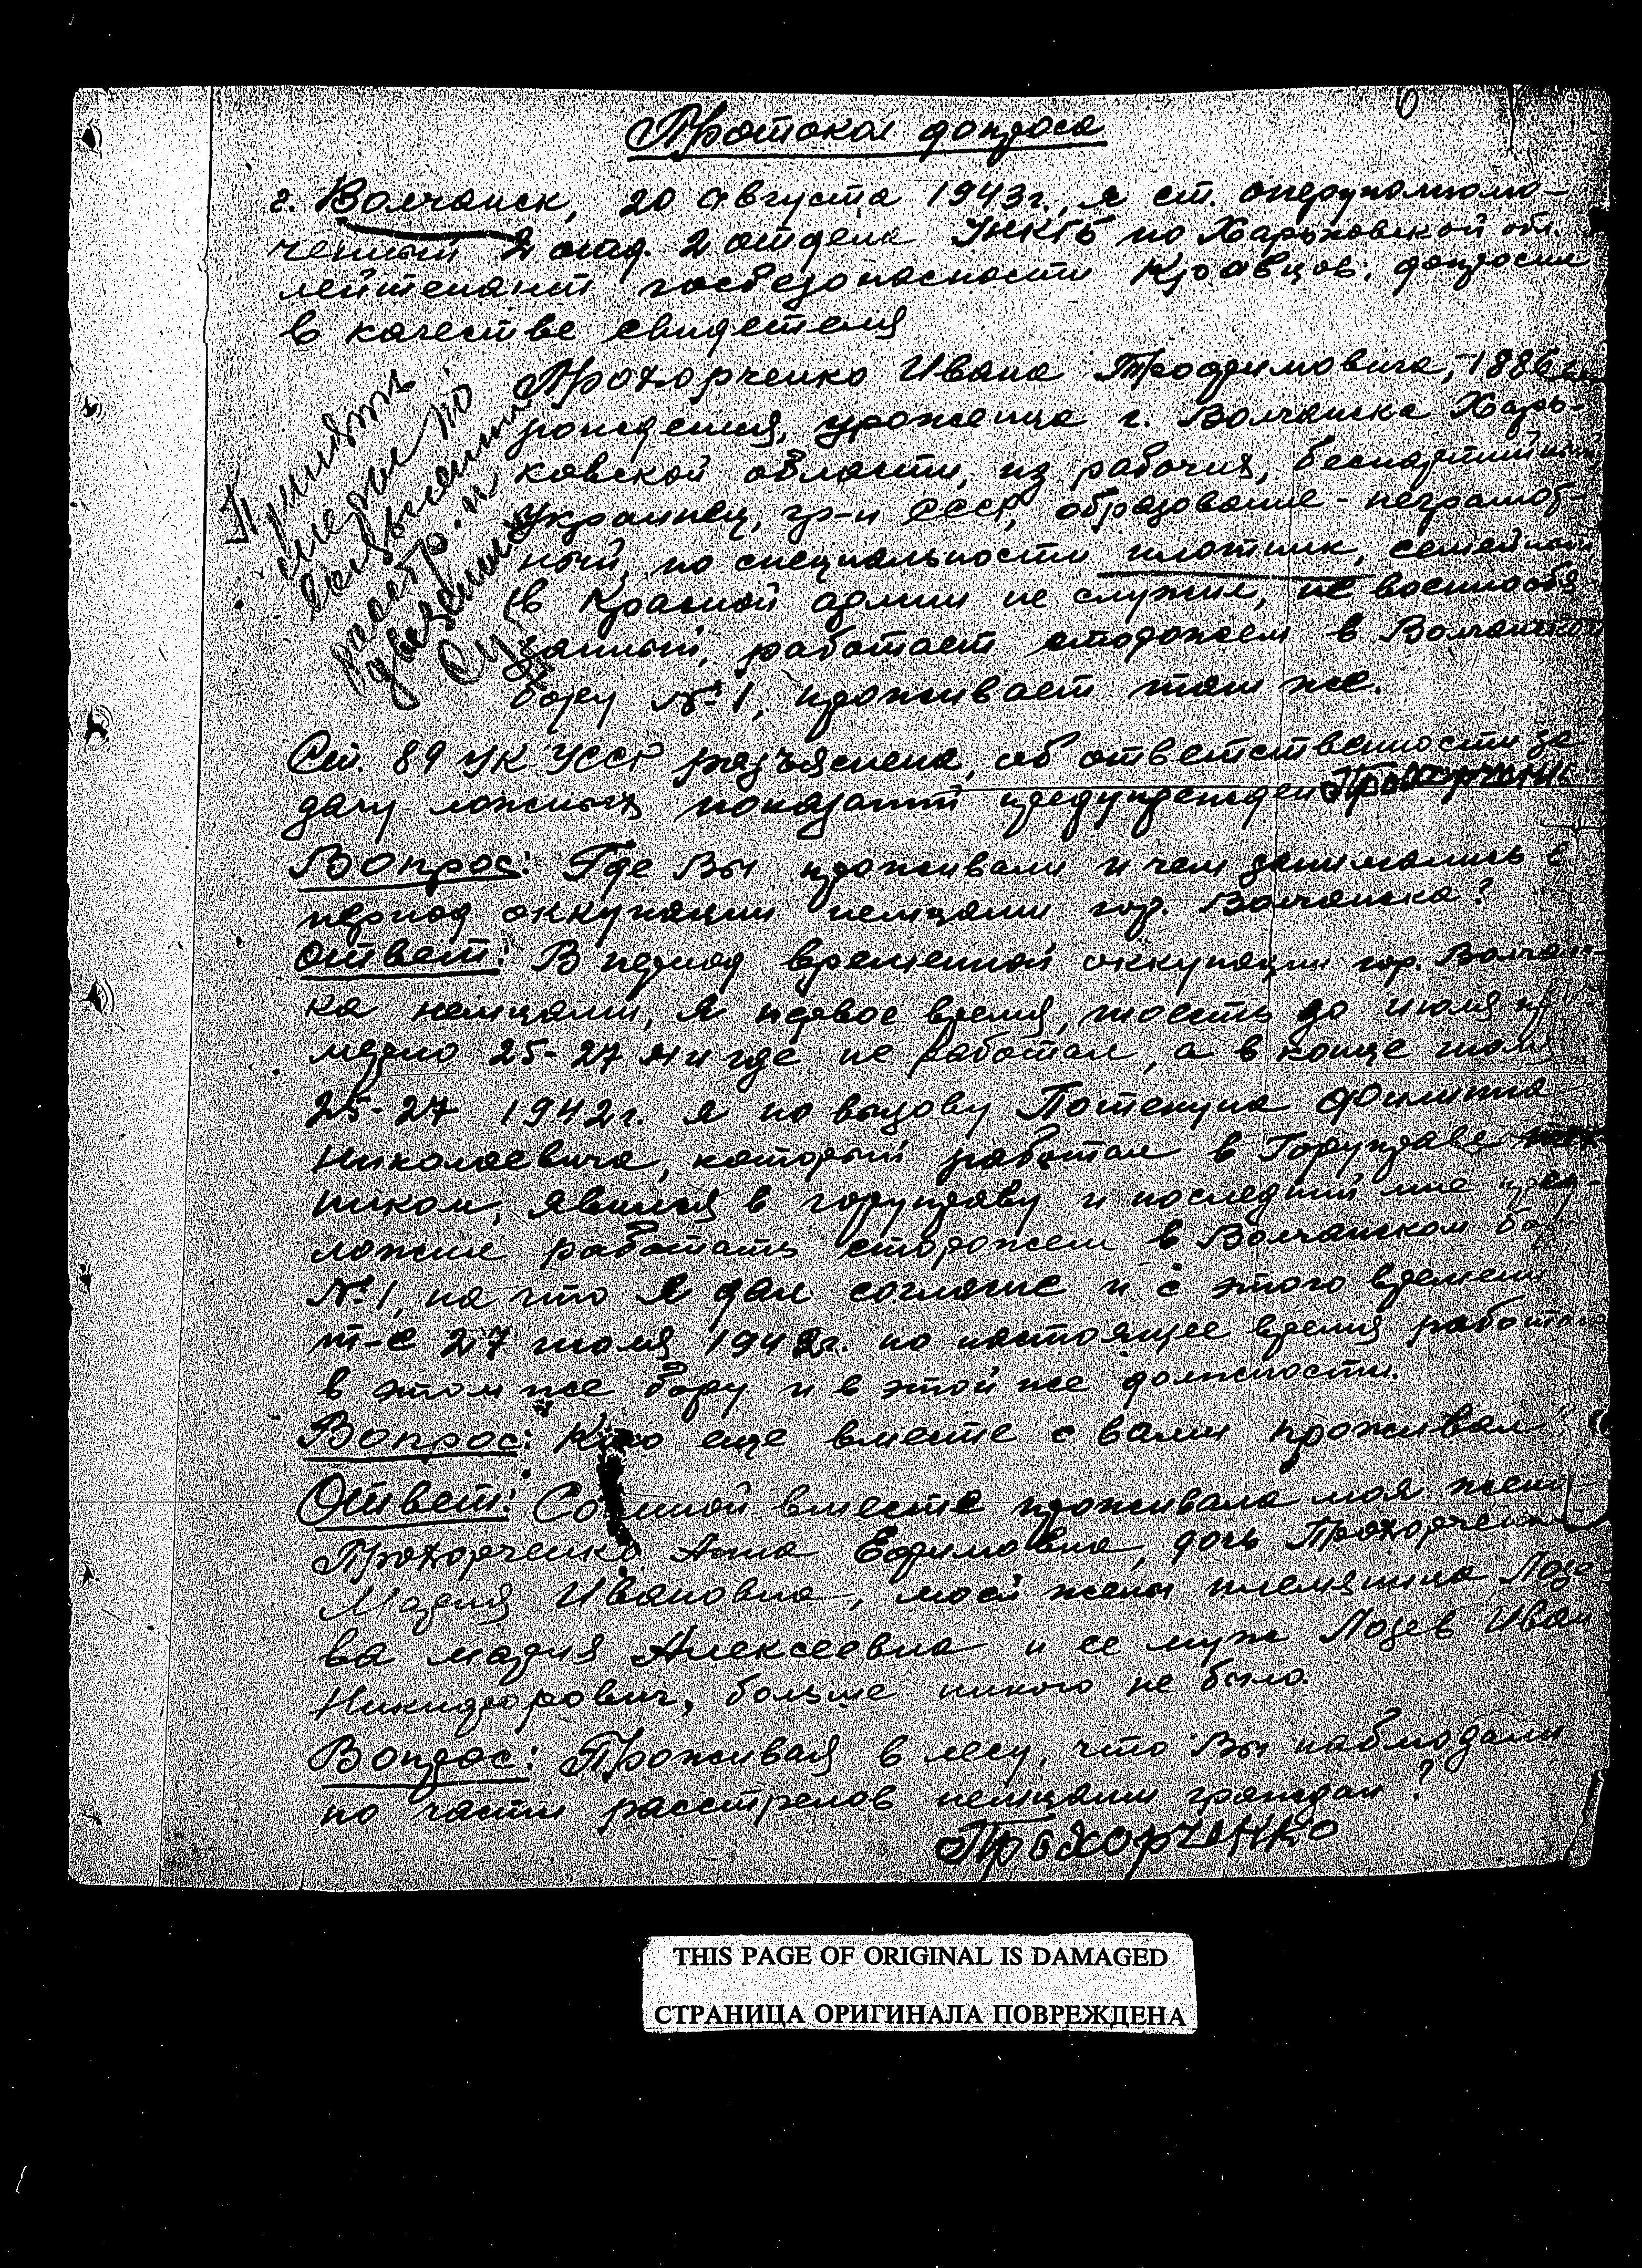 Протокол допроса
г. Волчанск, 20 августа 1943г., я ст. оперуполномо-
ченный 2 отд. 2 отдела УНКГБ по Харьковской обл.
лейтенант госбезопасности Кравцов, допросил
в качестве свидетеля
Прохорченко Ивана Трофимовича, 1886
рождения, уроженца г. Волчанска Харь-
ковской области, из рабочих, беспартийный
Украинец, гр-н СССР, образование - неграмот-
ный, по специальности плотник, семейный
в Красной армии не служил, не военнообя
занный, работает сторожем в Волчанском
бору №1, проживает там же.
Принять
следы по
расстр. и
Ст. 89 УК УССР разъяснена, об ответственности за
дачу ложных показаний предупрежден Прохорченко
Вопрос: Где Вы проживали и чем занимались в
период оккупации немцами гор. Волчанска?
Ответ: В период временной оккупации гор. Волчан-
ка немцами, я первое время, тоесть до июля при
мерно 25-27 ни где не работал, а в конце июля
25-27 1942г. я по вызову Потекуна Филиппа
Николаевича, который работал в Горуправе тех
ником, явился в горуправу и последний мне пред-
ложил работать сторожем в Волчанском бору
№1, на что я дал согласие и с этого времени
т-е 27 июля 1942г. по настоящее время работаю
в этом же бору и в этой же должности.
Вопрос: Кто еще вместе с вами проживал?
Ответ: Со мной вместе проживала моя жена
Прохорченко Анна Ефимовна, дочь Прохорченко
Мария Ивановна, моей жены племянница Лозе
ва мария Алексеевна и ее муж Лозев Иван
Никифорович, больше никого не было.
Вопрос: Проживая в лесу, что Вы наблюдали
по части расстрелов немцами граждан?
Прохорченко
THIS PAGE OF ORIGINAL IS DAMAGED
СТРАНИЦА ОРИГИНАЛА ПОВРЕЖДЕНА